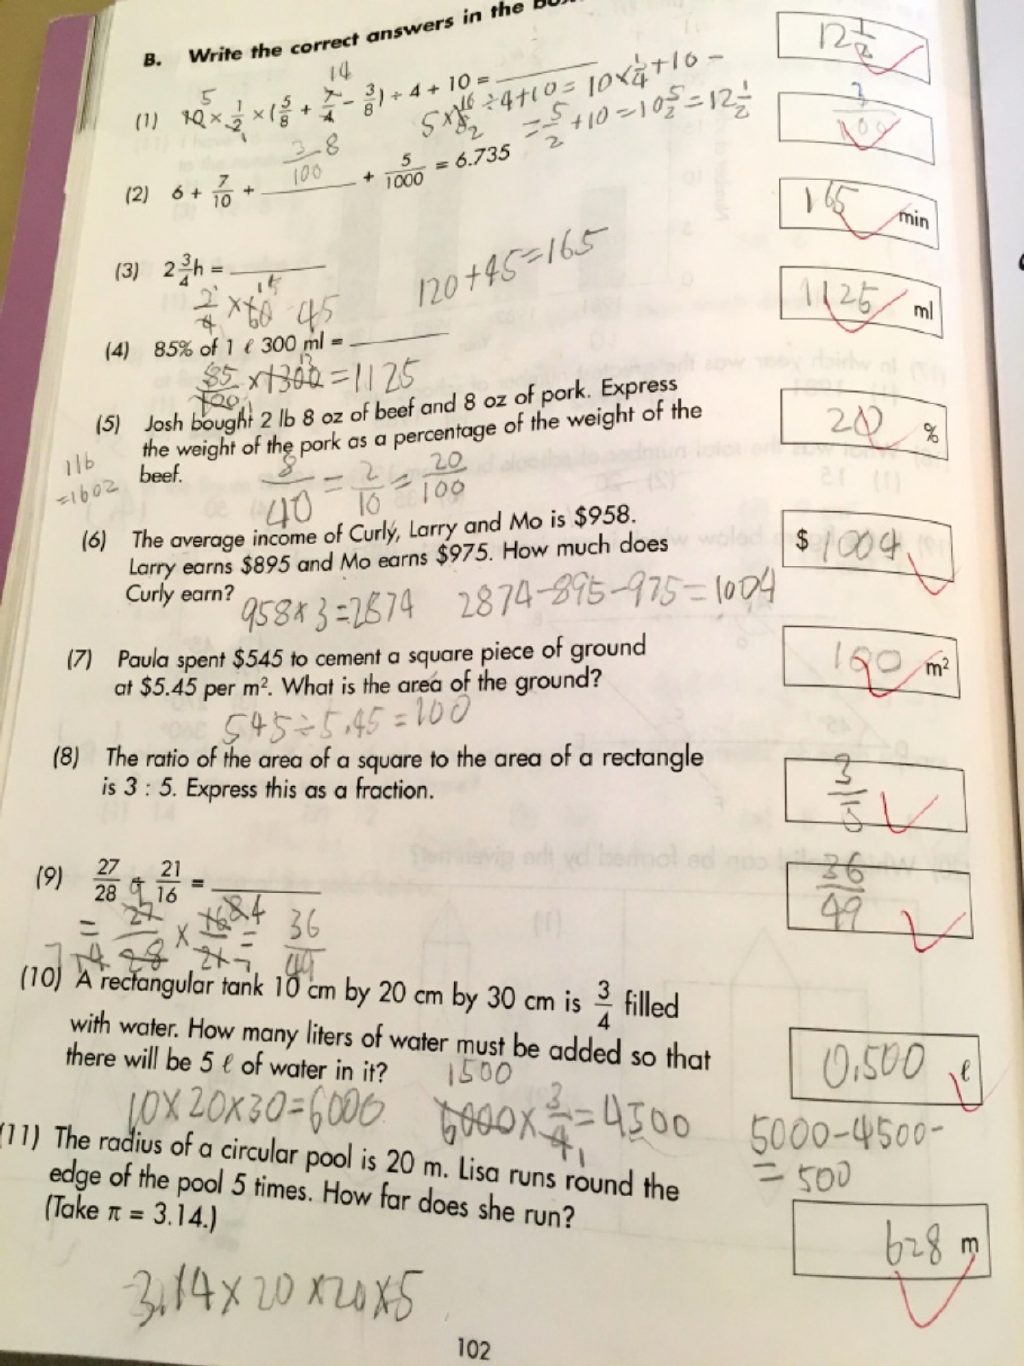 B. Write the correct answers in the box
12 1/2
14
5
(1) 10 × 1/2 × (5/8 + 7/4 - 3/8) ÷ 4 + 10 =
5 × 16/8 2 ÷ 4 + 10 = 10 × 1/4 + 10 -
= 5/2 + 10 = 10 5/2 = 12 1/2
3/100
3 8
100
(2) 6 + 7/10 + ____ + 5/1000 = 6.735
165 min
(3) 2 3/4 h = ____
120 + 45 = 165
15
× 60 45
1125 ml
(4) 85% of 1 ℓ 300 ml = ____
13
85/100 × 1300 = 1125
(5) Josh bought 2 lb 8 oz of beef and 8 oz of pork. Express
the weight of the pork as a percentage of the weight of the
beef.
20 %
1 lb
= 16oz
8/40 = 2/10 = 20/100
(6) The average income of Curly, Larry and Mo is $958.
Larry earns $895 and Mo earns $975. How much does
Curly earn?
$ 1004
958 × 3 = 2874 2874-895-975 = 1004
(7) Paula spent $545 to cement a square piece of ground
at $5.45 per m². What is the area of the ground?
100 m²
545 ÷ 5.45 = 100
(8) The ratio of the area of a square to the area of a rectangle
is 3 : 5. Express this as a fraction.
3/5
(9) 27/28 ÷ 21/16 = ____
36/49
= 27/28 × 16/21 = 36/49
(10) A rectangular tank 10 cm by 20 cm by 30 cm is 3/4 filled
with water. How many liters of water must be added so that
there will be 5 ℓ of water in it?
0.500 ℓ
1500
10×20×30=6000 6000×3/4=4500
5000-4500-
= 500
(11) The radius of a circular pool is 20 m. Lisa runs round the
edge of the pool 5 times. How far does she run?
(Take π = 3.14.)
628 m
3.14 × 20 × 20 × 5
102